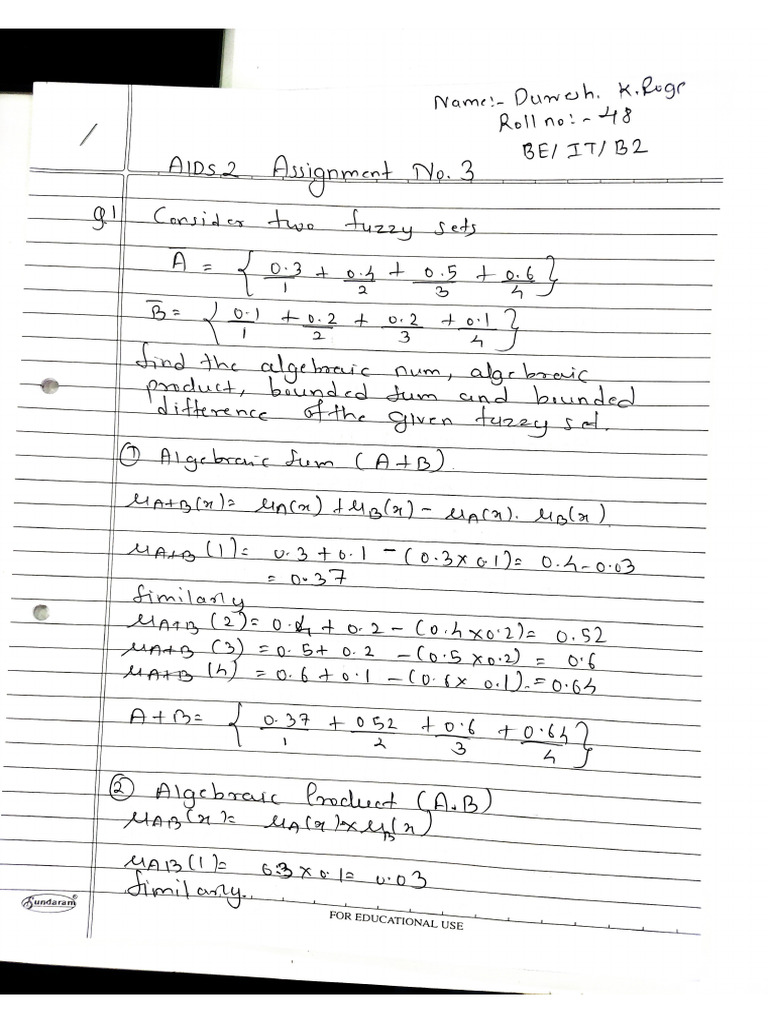 Name:- Durvesh. K. Roge
Roll no:- 48
BE/ IT/ B2
1
AIDS2 Assignment No. 3
Q1 Consider two fuzzy sets
A = { 0.3/1 + 0.4/2 + 0.5/3 + 0.6/4 }
B = { 0.1/1 + 0.2/2 + 0.2/3 + 0.1/4 }
find the algebraic num, algebraic
product, bounded sum and bounded
difference of the given fuzzy set.
① Algebraic sum (A+B)
μA+B(x) = μA(x) + μB(x) - μA(x). μB(x)
μA+B (1) = 0.3 + 0.1 - (0.3 x 0.1) = 0.4 - 0.03
= 0.37
Similarly
μA+B (2) = 0.4 + 0.2 - (0.4 x 0.2) = 0.52
μA+B (3) = 0.5 + 0.2 - (0.5 x 0.2) = 0.6
μA+B (4) = 0.6 + 0.1 - (0.6 x 0.1) = 0.64
A+B = { 0.37/1 + 0.52/2 + 0.6/3 + 0.64/4 }
② Algebraic Product (A.B)
μAB(x) = μA(x) x μB(x)
μAB(1) = 0.3 x 0.1 = 0.03
Similarly.
Sundaram
FOR EDUCATIONAL USE